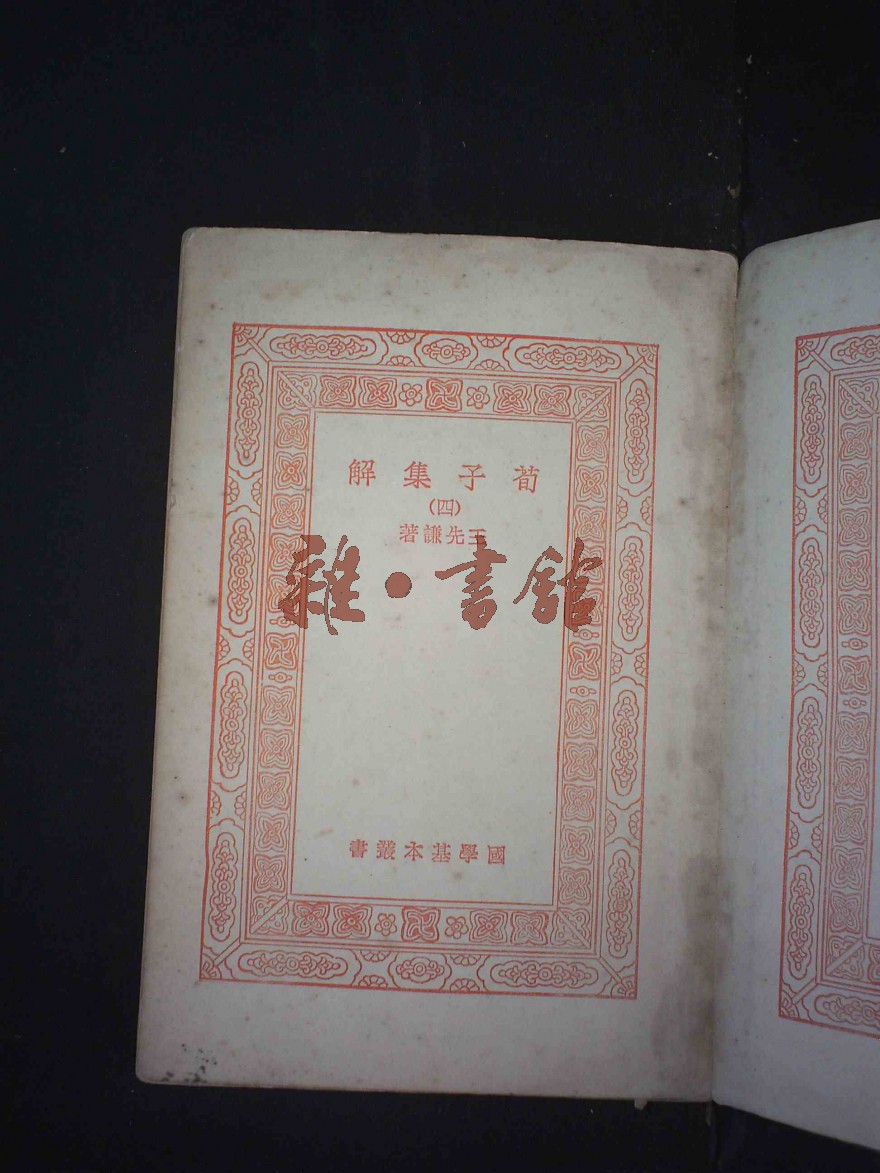 荀子集解
(四)
王先謙著
雜·書館
國學基本叢書